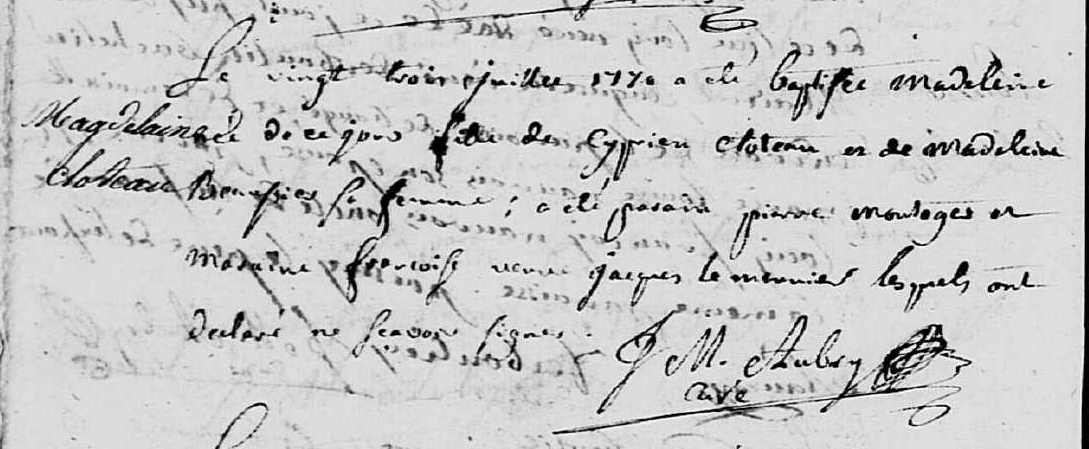 Le vingt trois juillet 1770 a été baptisée Madeleine
Magdelaine née de ce jour fille de Cyprien Cloteau et de Madeleine
Cloteau sa femme ; a été parain pierre et
Maraine françoise veuve jacques le meunier lesquels ont
declaré ne sçavoir signer.
J M. Aubry
curé